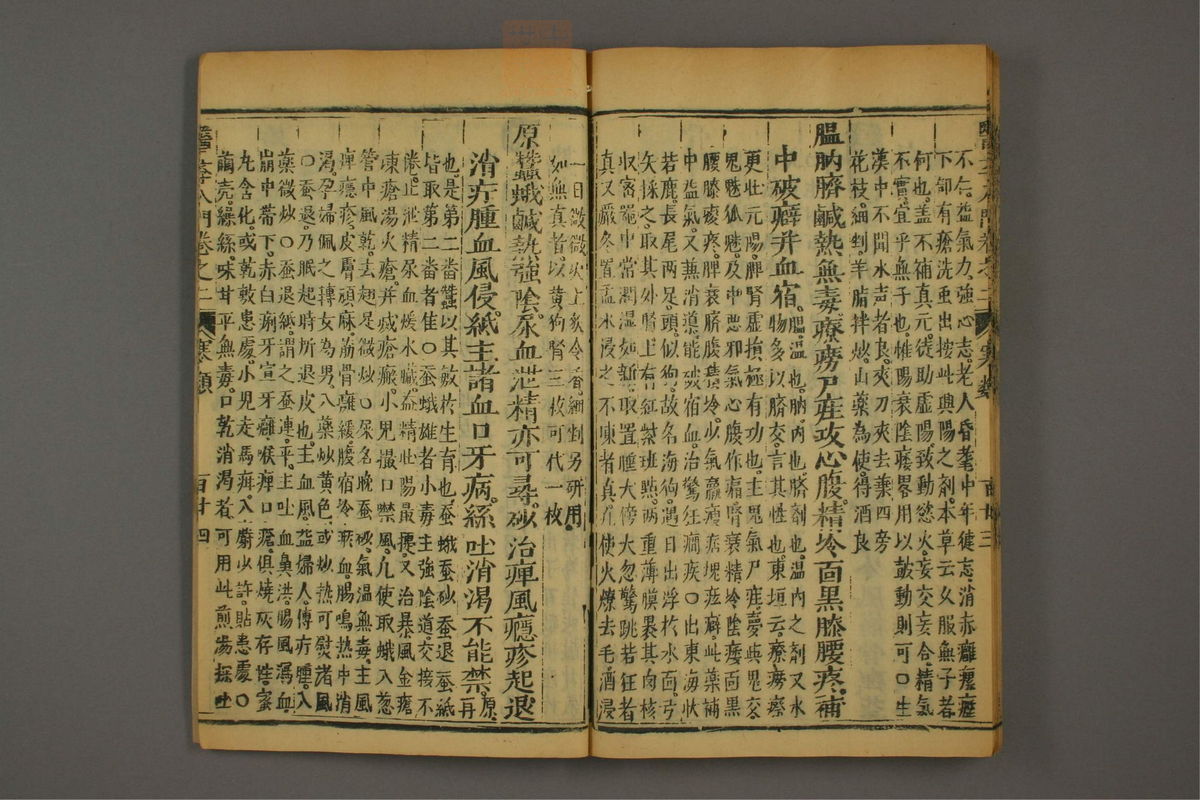 醫學入門卷之二
不仁益氣力強心志老人昏耄中年健忘消赤癰癭瘧
下卸有瘡洗蟲出按此與陽之劑本草云久服無子者
何也盖不補真元徒助虛陽致動慾火妄交妄合精氣
不實宜乎無子也惟陽衰陰痿畧用以鼓動則可〇生
漢中不聞水声者良夾刀夾去葉四旁
花枝細剉羊脂拌炒山藥為使得酒良
膃肭臍鹹熱無毒療癆尸疰攻心腹精冷面黒膝腰疼補
中破癖并血宿膃温也肭内也臍劑也温内之劑又水
物多以臍交言其性也東垣云療癆瘵
更壯元陽脾腎虛損極有功也主鬼氣尸疰夢與鬼交
鬼魅狐魅及中惡邪氣心腹作痛腎衰精冷陰痿面黒
腰膝痠疼脾衰臍腹積冷少氣羸瘦痞塊痃癖此藥補
中益氣又兼消導能破宿血治驚狂癇疾〇出東海狀
若鹿長尾兩足頭似狗故名海狗遇日出浮於水面弓
矢採之取其外腎上有紅紫斑㸃兩重薄膜裹其肉核
収密器中常潤湿如新取置睡犬傍犬忽驚跳若狂者
真又嚴冬置盂水浸之不凍者真凡使火燎去毛酒浸
一日微微火上炙令香細剉另研用
如無真者以黄狗腎三枚可代一枚
原蠶蛾鹹熱強陰尿血泄精亦可尋砂治痺風癮疹起退
治疔腫血風侵紙主諸血口牙病絲吐消渴不能禁原再
也是第二畨蠶以其敏於生育也蚕蛾蚕砂蚕退蚕紙
皆取第二畨者佳〇蚕蛾雄者小毒主強陰道交接不
倦止泄精尿血煖水臟益精壯陽最捷又治暴風金瘡
凍瘡湯火瘡并滅瘡瘢小児撮口禁風凡使取蛾入葱
管中風乾去翅足微炒〇尿名晚蚕砂氣温無毒主風
痺癮疹皮膚頑麻筋骨癱緩腹宿冷瘀血腸鳴熱中消
渴孕婦佩之轉女為男入藥炒黄色或炒熱可熨諸風
〇蚕退乃眠起時所退皮也主血風益婦人傳疔腫入
藥微炒〇蚕退紙謂之蚕連平主吐血鼻洪腸風瀉血
崩中帶下赤白痢牙宣牙癰喉痺口瘡俱燒灰存性蜜
丸含化或乾敷患處小児走馬疳入麝少許貼患處〇
繭売繰絲味甘平無毒口乾消渴者可用此煎湯探吐
醫學入門卷之二 寒類 百廿四